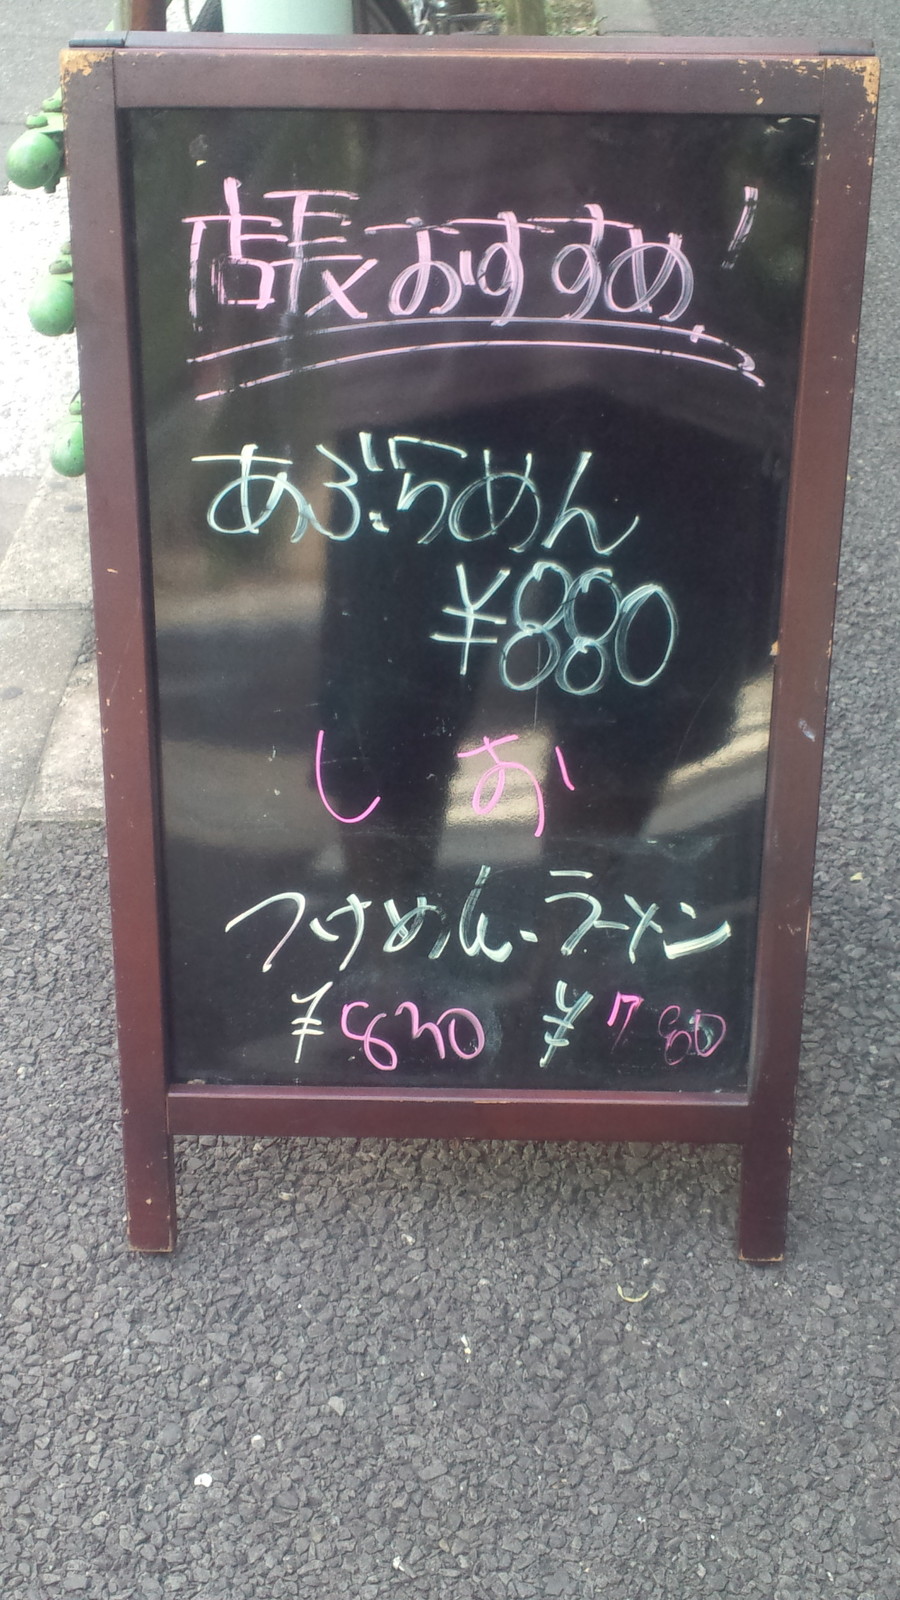 店長おすすめ!
あぶらめん
¥880
しお
つけめん・ラーメン
¥830 ¥780